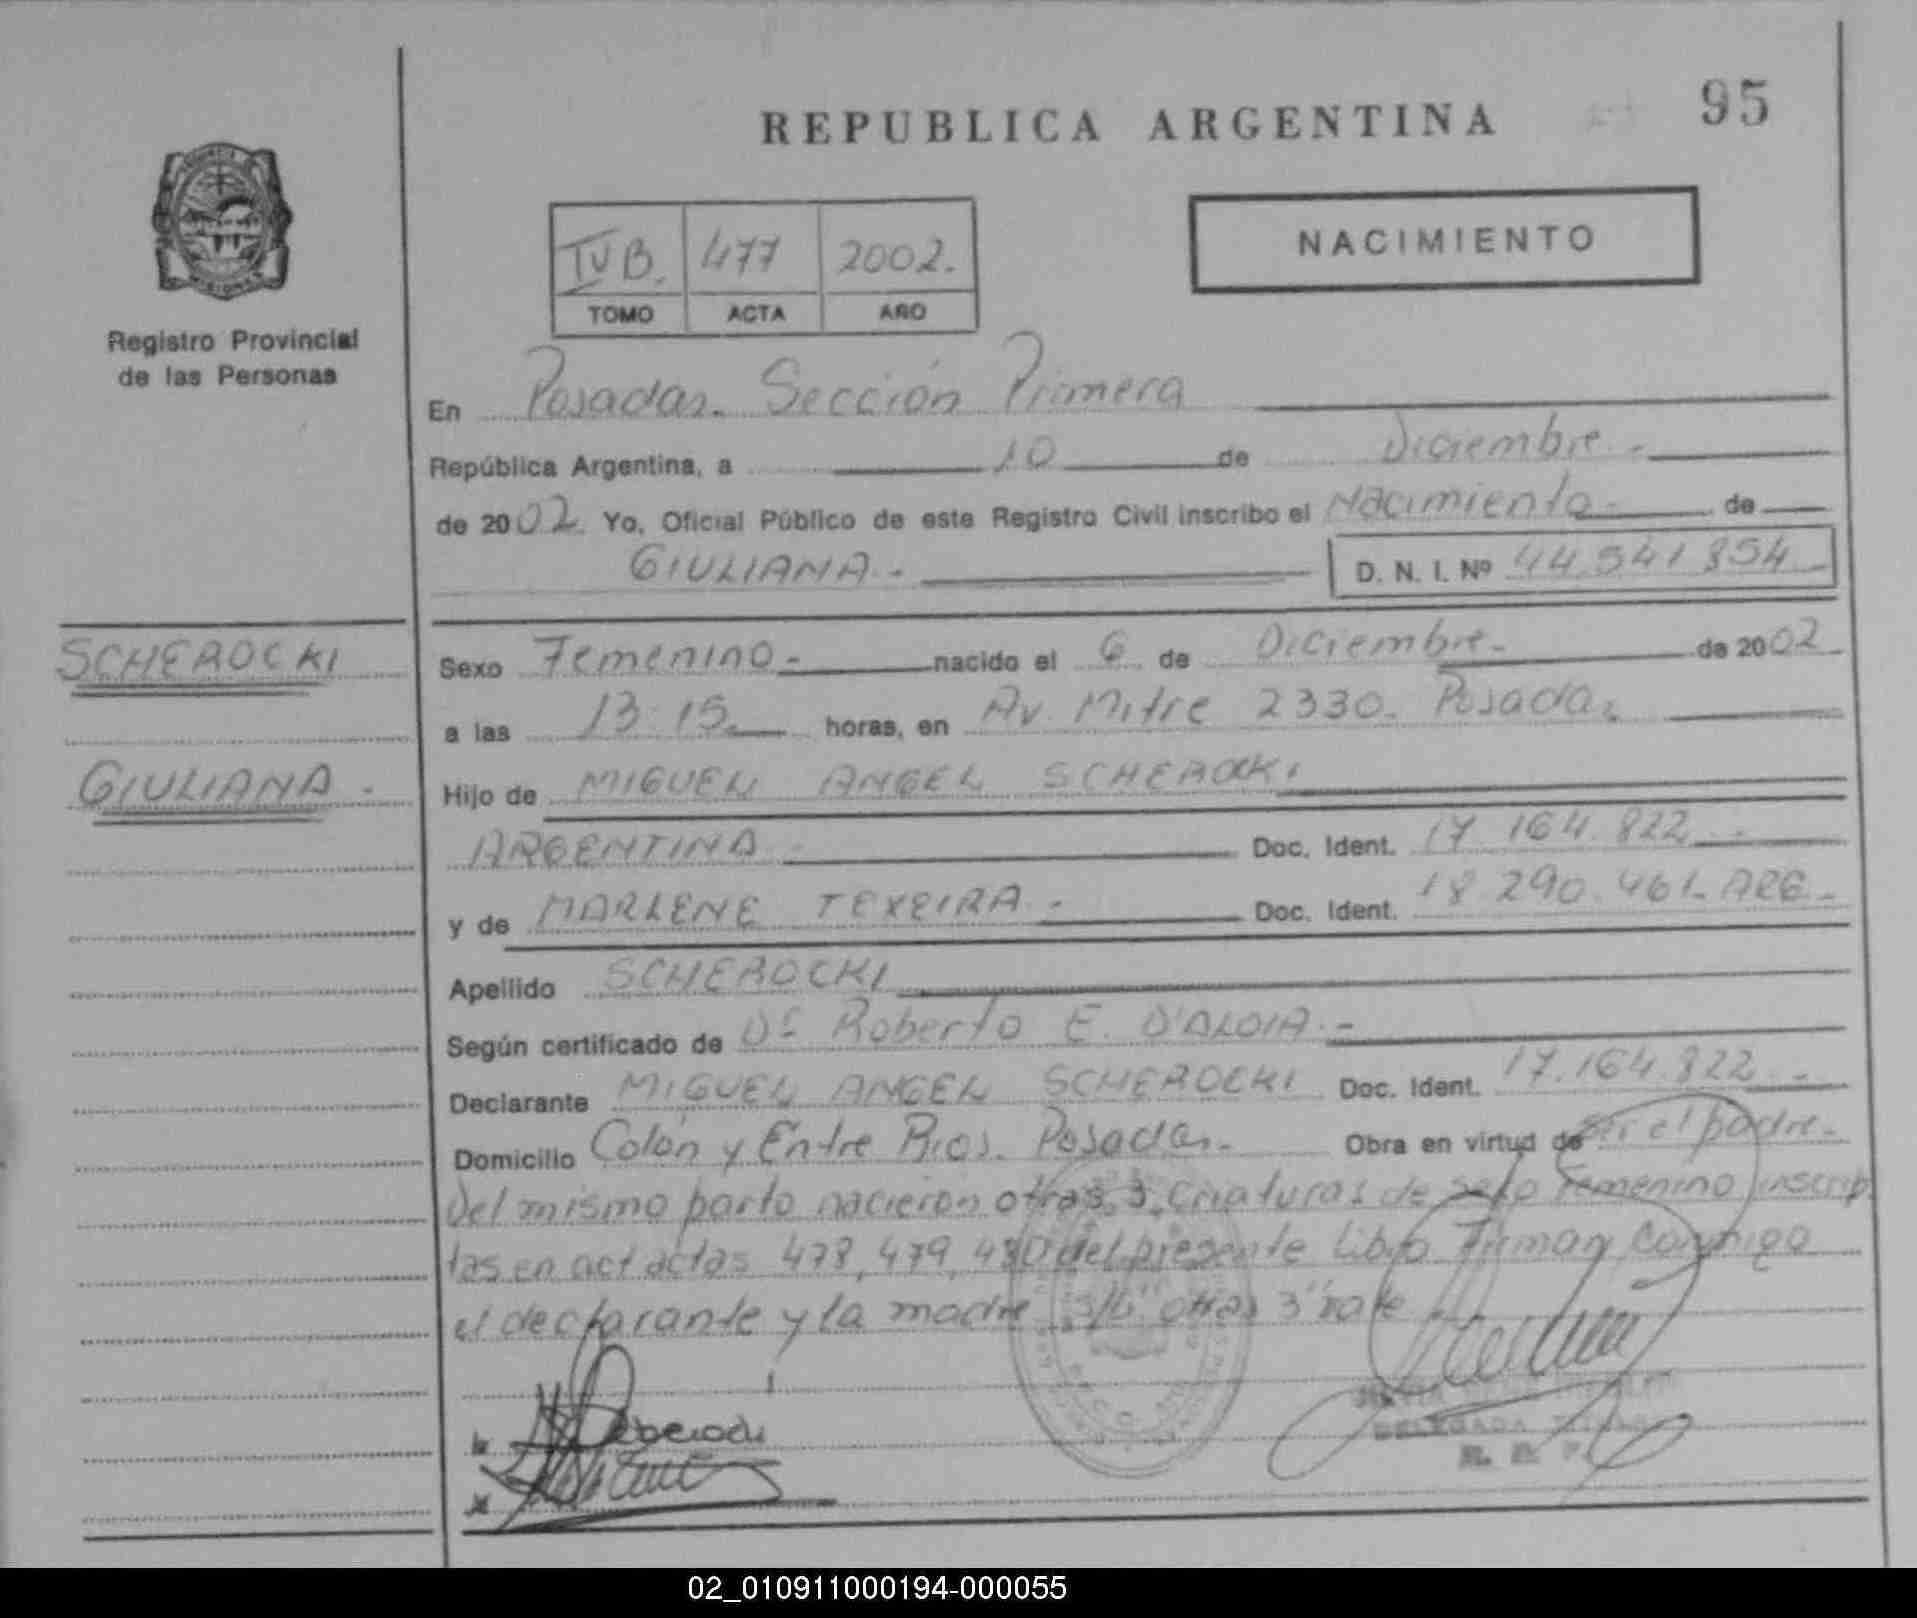 REPUBLICA ARGENTINA
95
NACIMIENTO
IVB. 477 2002.
TOMO ACTA AÑO
Registro Provincial
de las Personas
En Posadas. Sección Primera
República Argentina, a 10 de Diciembre.-
de 2002 Yo, Oficial Público de este Registro Civil inscribo el Nacimiento- de
GIULIANA.- D. N. I. Nº 44.541.854
SCHEROCKI
Sexo Femenino- nacido el 6 de Diciembre- de 2002
a las 13:15. horas, en Av. Mitre 2330. Posadas
GIULIANA.
Hijo de MIGUEL ANGEL SCHEROCKI
ARGENTINA- Doc. Ident. 17.164.822.-
y de MARLENE TEXEIRA.- Doc. Ident. 18.290.461-ARG-
Apellido SCHEROCKI
Según certificado de Dr Roberto E. D'ALOIA.-
Declarante MIGUEL ANGEL SCHEROCKI Doc. Ident. 17.164.822.-
Domicilio Colón y Entre Rios. Posadas.- Obra en virtud de ser el padre.-
Del mismo parto nacieron otras 3 criaturas de sexo femenino inscrip
tas en act actas 478, 479, 480 del presente libro Firman conmigo
el declarante y la madre S/L "otras 3" vale
DELEGADA
R. P.
02_010911000194-000055